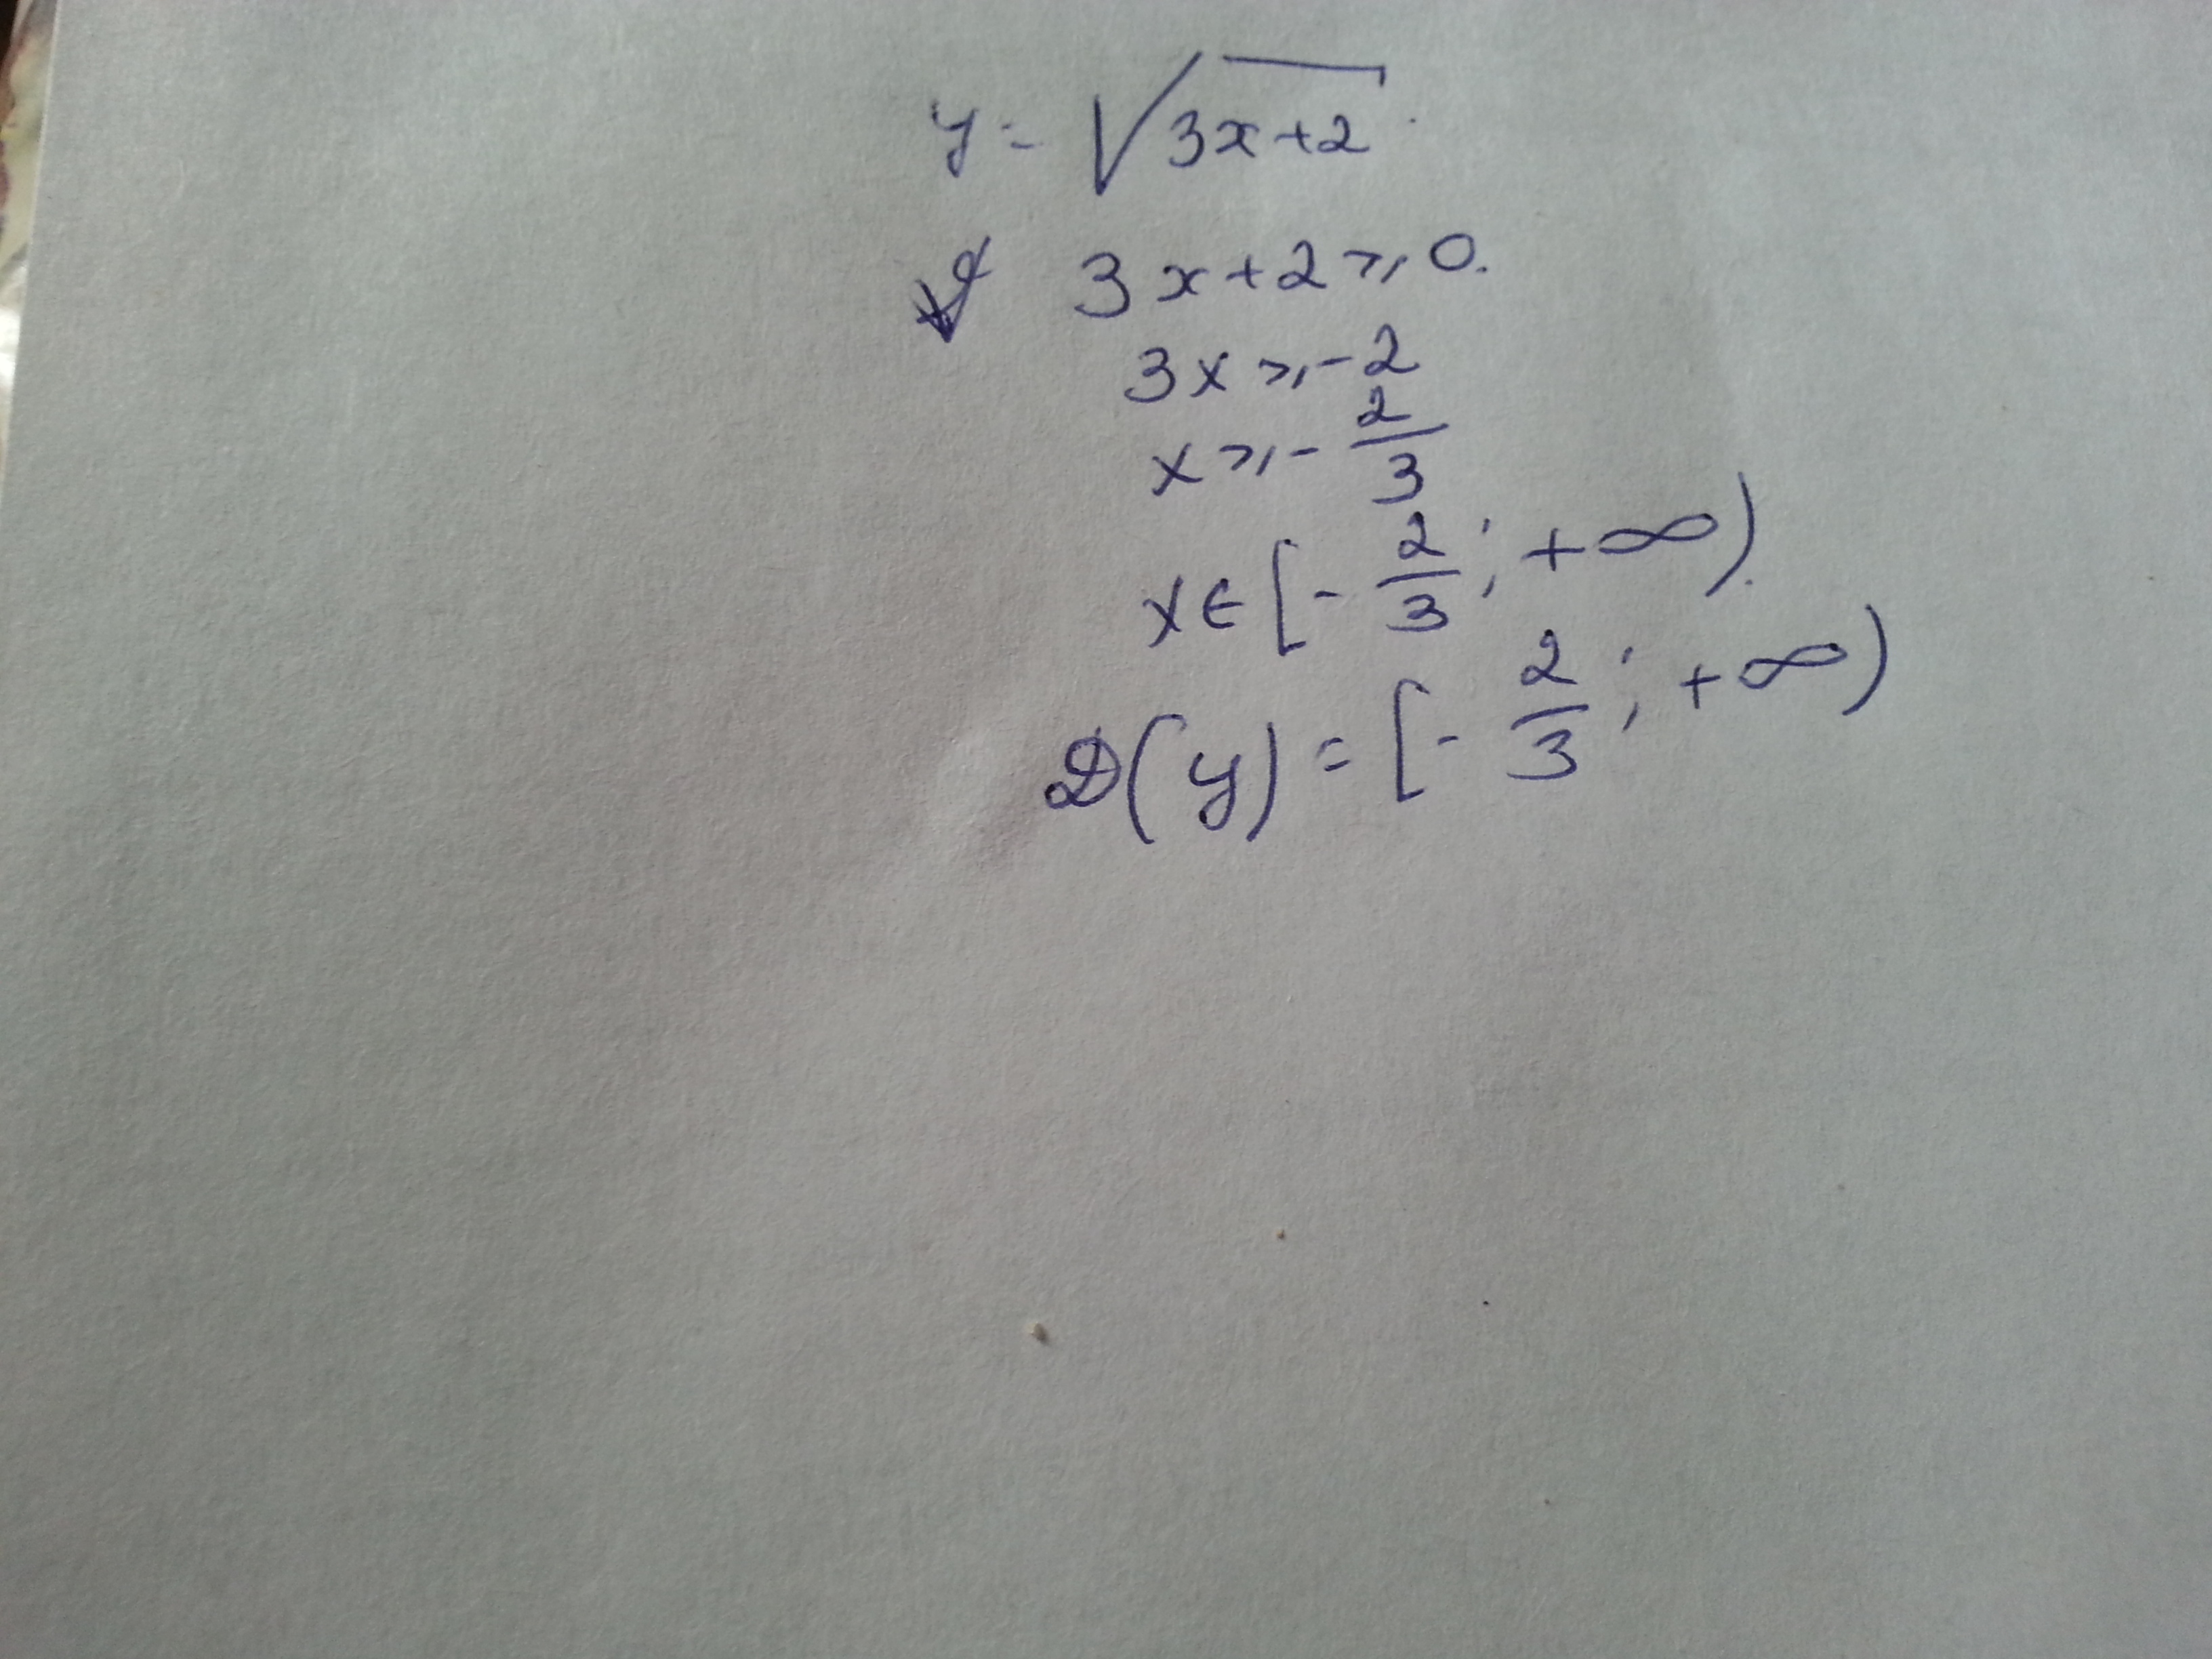 y = √(3x+2)
3x+2 ⩾ 0.
3x ⩾ -2
x ⩾ - 2/3
x ∈ [- 2/3 ; +∞).
D(y) = [- 2/3 ; +∞)